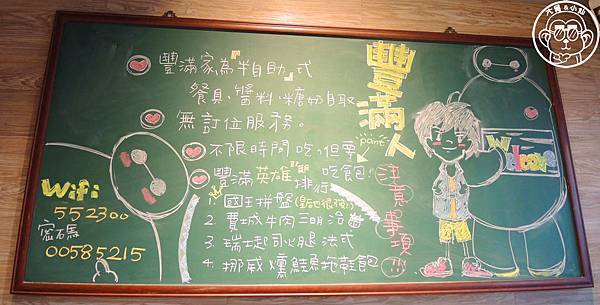 豐滿人
注意事項!!!
豐滿家為"半自助"式
餐具、醬料、糖奶自取
無訂位服務。
不限時間吃,但要
point
吃飽!
豐滿英雄"飽"
排行
1. 國王拼盤(益他很強!)
2. 費城牛肉三明治
3. 瑞士起司火腿法式
4. 挪威燻鮭魚拖鞋飽
Wifi
552300
密碼
00585215
Welcome
大鼻&小小